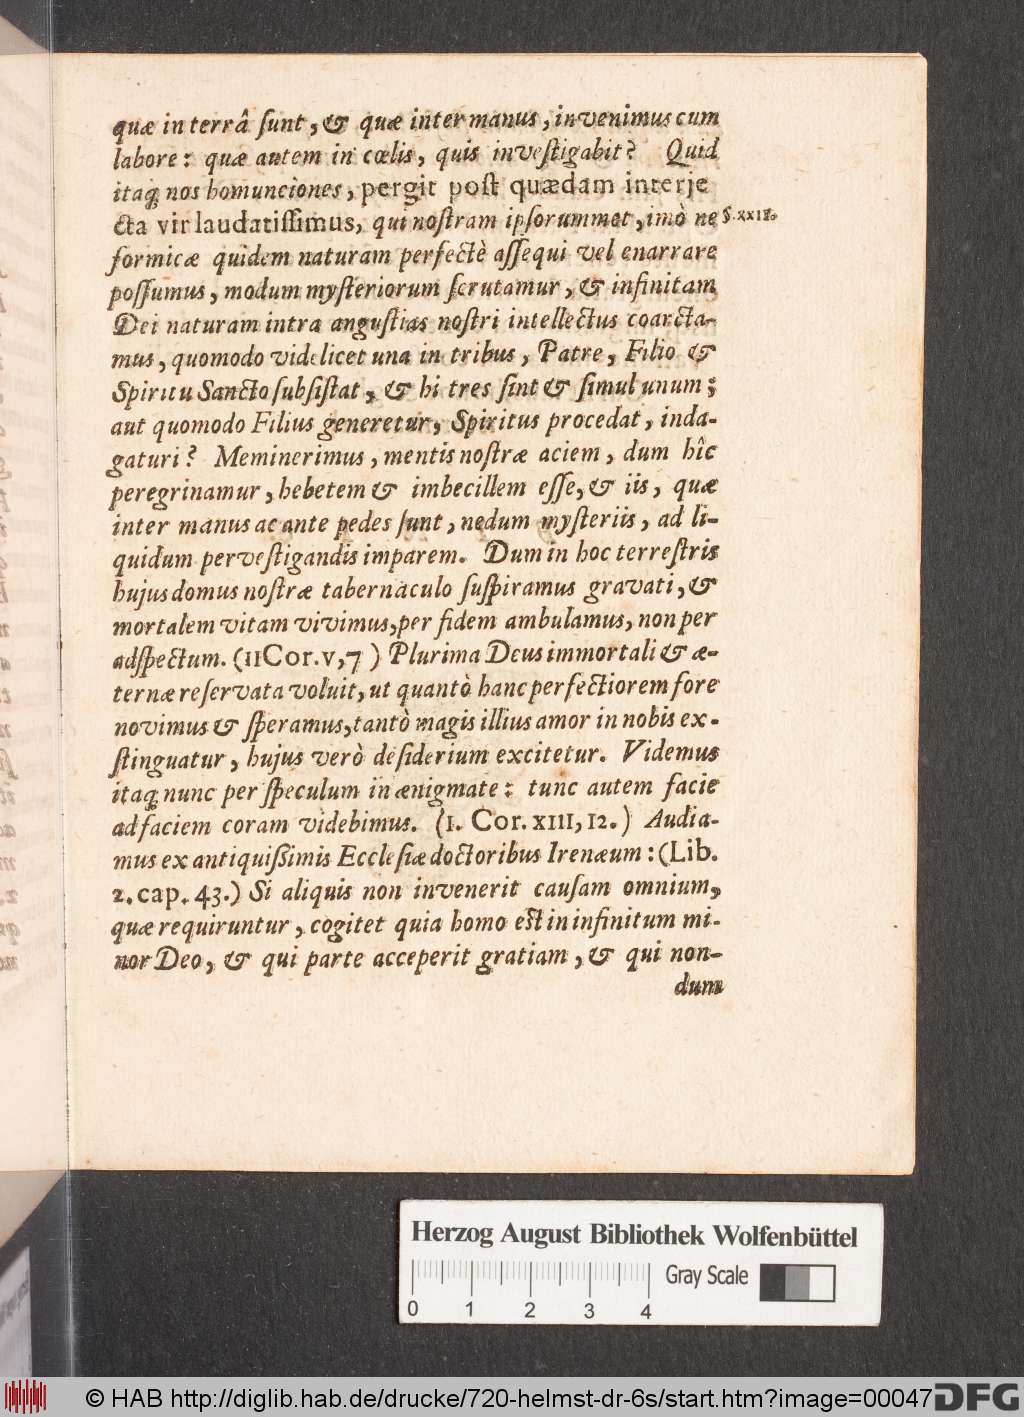 quæ in terrâ ſunt, & quæ inter manus, invenimus cum
labore: quæ autem in cœlis, quis inveſtigabit? Quid
itaq; nos homunciones, pergit poſt quædam interje
cta vir laudatiſſimus, qui noſtram ipſorummet, imò ne §. XXII.
formicæ quidem naturam perfectè aſſequi vel enarrare
poſſumus, modum myſteriorum ſcrutamur, & infinitam
Dei naturam intra anguſtias noſtri intellectus coarcta-
mus, quomodo videlicet una in tribus, Patre, Filio &
Spiritu Sancto ſubſiſtat, & hi tres ſint & ſimul unum;
aut quomodo Filius generetur, Spiritus procedat, inda-
gaturi? Meminerimus, mentis noſtræ aciem, dum hîc
peregrinamur, hebetem & imbecillem eſſe, & iis, quæ
inter manus ac ante pedes ſunt, nedum myſteriis, ad li-
quidum perveſtigandis imparem. Dum in hoc terreſtris
hujus domus noſtræ tabernaculo ſuſpiramus gravati, &
mortalem vitam vivimus, per fidem ambulamus, non per
adſpectum. (IICor. V, 7) Plurima Deus immortali & æ-
ternæ reſervata voluit, ut quantò hanc perfectiorem fore
novimus & ſperamus, tantò magis illius amor in nobis ex-
ſtinguatur, hujus verò deſiderium excitetur. Videmus
itaq; nunc per ſpeculum in ænigmate: tunc autem facie
ad faciem coram videbimus. (I. Cor. XIII, 12.) Audia-
mus ex antiquiſſimis Eccleſiæ doctoribus Irenæum: (Lib.
2. cap. 43.) Si aliquis non invenerit cauſam omnium,
quæ requiruntur, cogitet quia homo eſt in infinitum mi-
nor Deo, & qui parte acceperit gratiam, & qui non-
dum
Herzog August Bibliothek Wolfenbüttel
Gray Scale
0 1 2 3 4
© HAB http://diglib.hab.de/drucke/720-helmst-dr-6s/start.htm?image=00047
DFG